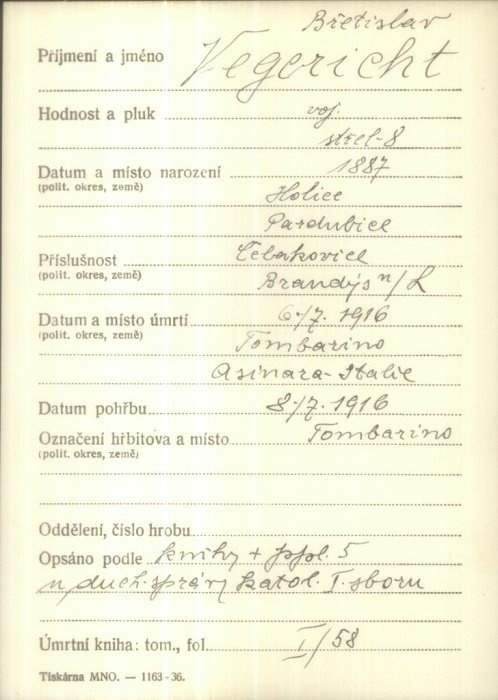 Břetislav
Příjmení a jméno Vegericht
Hodnost a pluk voj.
střel-8
Datum a místo narození 1887
(polit. okres, země) Holice
Pardubice
Příslušnost Čelakovice
(polit. okres, země) Brandýs n/L
Datum a místo úmrtí 6./7. 1916
(polit. okres, země) Tombarino
Asinara-Italie
Datum pohřbu 8./7. 1916
Označení hřbitova a místo Tombarino
(polit. okres, země)
Oddělení, číslo hrobu
Opsáno podle knihy + ppl. 5
u duch. správy katol. I. sboru
Úmrtní kniha: tom., fol. I/58
Tiskárna MNO. — 1163-36.